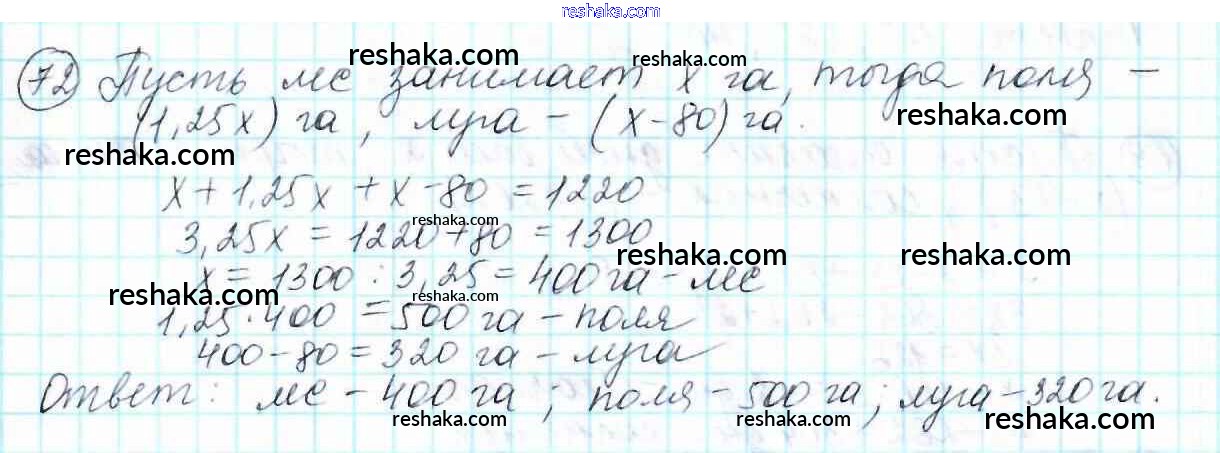 reshaka.com
72) Пусть лес занимает x га, тогда поля –
reshaka.com
reshaka.com
(1,25x) га, луга – (x-80) га.
reshaka.com
reshaka.com
x + 1,25x + x - 80 = 1220
reshaka.com
3,25x = 1220+80 = 1300
reshaka.com
reshaka.com
x = 1300 : 3,25 = 400 га – лес
reshaka.com
reshaka.com
1,25 · 400 = 500 га – поля
400 - 80 = 320 га – луга
Ответ: лес – 400 га; поля – 500 га; луга – 320 га.
reshaka.com
reshaka.com
reshaka.com
reshaka.com